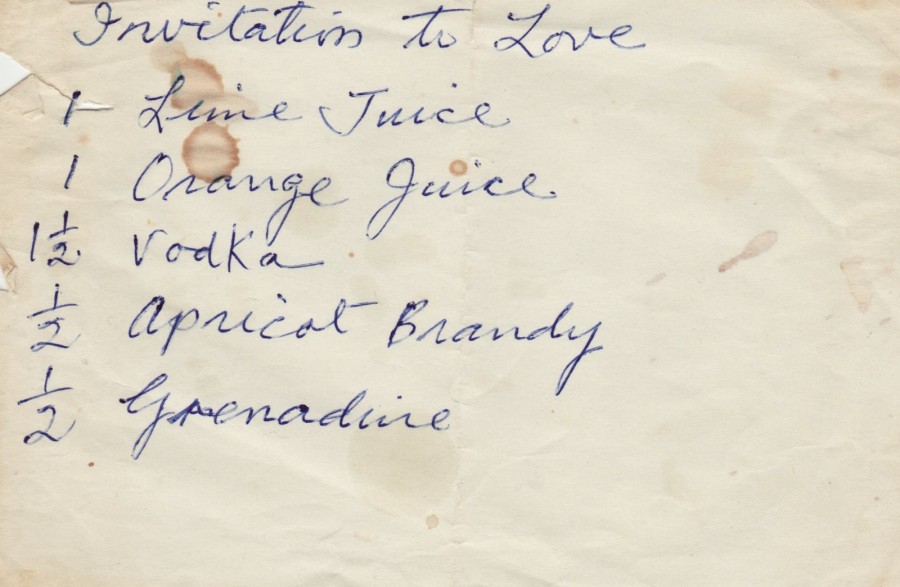 Invitation to Love
1 Lime Juice
1 Orange Juice
1 1/2 Vodka
1/2 Apricot Brandy
1/2 Grenadine